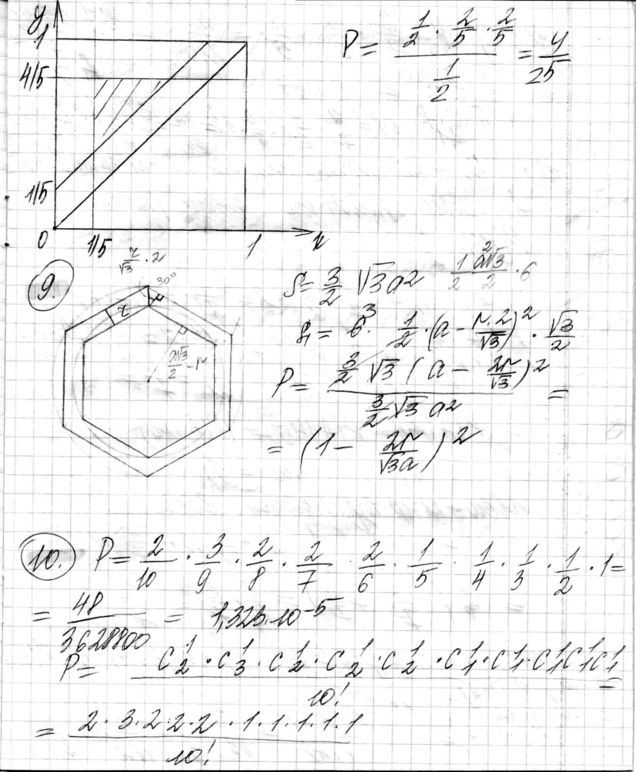 y
1
4/5
1/5
0 1/5 1 x
P = (1/2 · 2/5 · 2/5) / (1/2) = 4/25
9.
r/√3 · 2
30°
r
t
a√3/2 - r
S = 3/2 √3 a² 1/2 a²√3/2 · 6
S₁ = 6³ · 1/2 · (a - r·2/√3)² · √3/2
P = (3/2 √3 (a - 2r/√3)²) / (3/2 √3 a²) =
= (1 - 2r/√3a)²
10. P = 2/10 · 3/9 · 2/8 · 2/7 · 2/6 · 1/5 · 1/4 · 1/3 · 1/2 · 1 =
= 48/3628800 = 1,323·10⁻⁵
P = (C₂¹ · C₃¹ · C₂¹ · C₂¹ · C₂¹ · C₁¹ · C₁¹ · C₁¹ C₁¹ C₁¹) / 10! =
= (2 · 3 · 2 · 2 · 2 · 1 · 1 · 1 · 1 · 1) / 10!